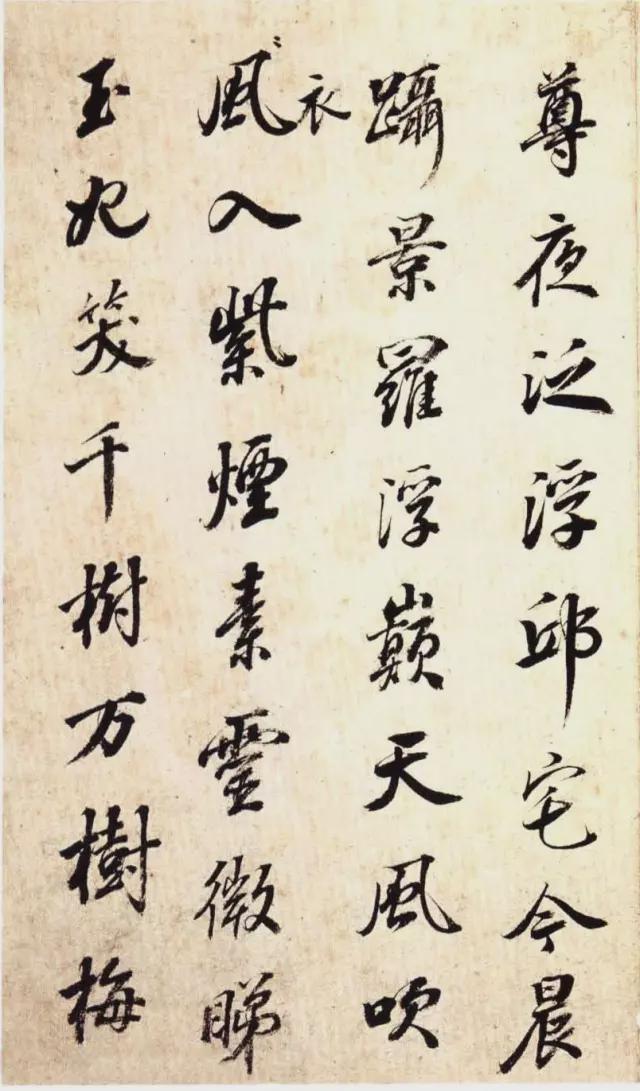 尊夜泛浮邱宅今晨
躡景羅浮巔天風吹
風衣入紫煙素靈微睇
玉妃笑千樹万樹梅